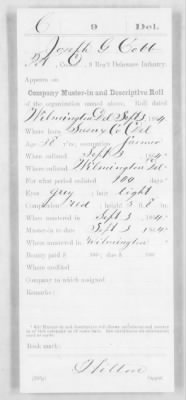 C 9 Del.
Joseph G Cobb
Pvt, Co. , 9 Reg't Delaware Infantry.
Appears on
Company Muster-in and Descriptive Roll
of the organization named above. Roll dated
Wilmington Del Sept 3, 1864.
Where born Sussex Co Del
Age 18 y'rs; occupation Farmer
When enlisted Sept 3, 1864.
Where enlisted Wilmington Del
For what period enlisted 100 days
Eyes grey; hair light
Complexion red; height 5 ft. 8 in.
When mustered in Sept 3, 1864.
Muster-in to date Sept 3, 1864.
Where mustered in Wilmington
Bounty paid $ 100; due $ 100
Where credited
Company to which assigned
Remarks:
Book mark:
Copyist.